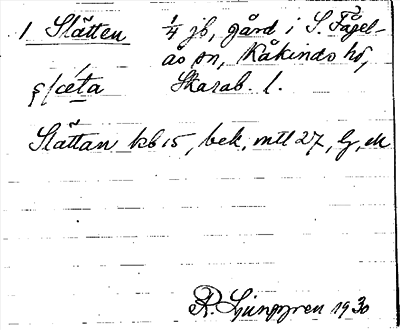 1 Slätten 1/4 jb, gård i S. Fågel-
ås sn, Kåkinds hd,
Skarab. l.
Slättan kb 15, bek, mtl 27, lj, ek
R. Ljunggren 1930